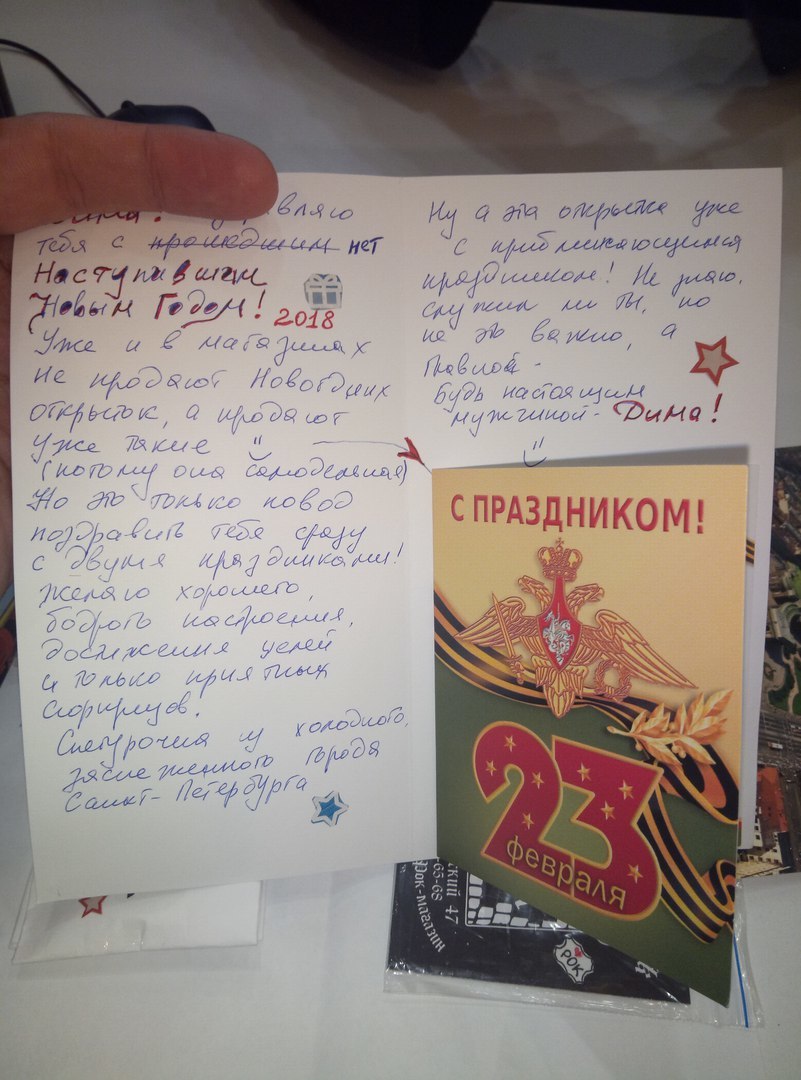 Дима! вляю
тебя с прошедшим нет
Наступившим
Новым Годом! 2018
Уже и в магазинах
не продают Новогдних
открыток, а продают
уже такие
(потому она самодельная)
Но это только повод
поздравить тебя сразу
с двумя праздниками!
Желаю хорошего,
бодрого настроения,
достижения целей
и только приятных
сюрпризов.
Снегурочка из холодного,
заснеженного города
Санкт-Петербурга
Ну а эта открытка уже
с приближающимся
праздником! Не знаю,
служил ли ты, но
не это важно, а
главное -
Будь настоящим
мужчиной - Дима!
С ПРАЗДНИКОМ!
23
февраля
ский 47
65-68
Рок-магазин
РОК